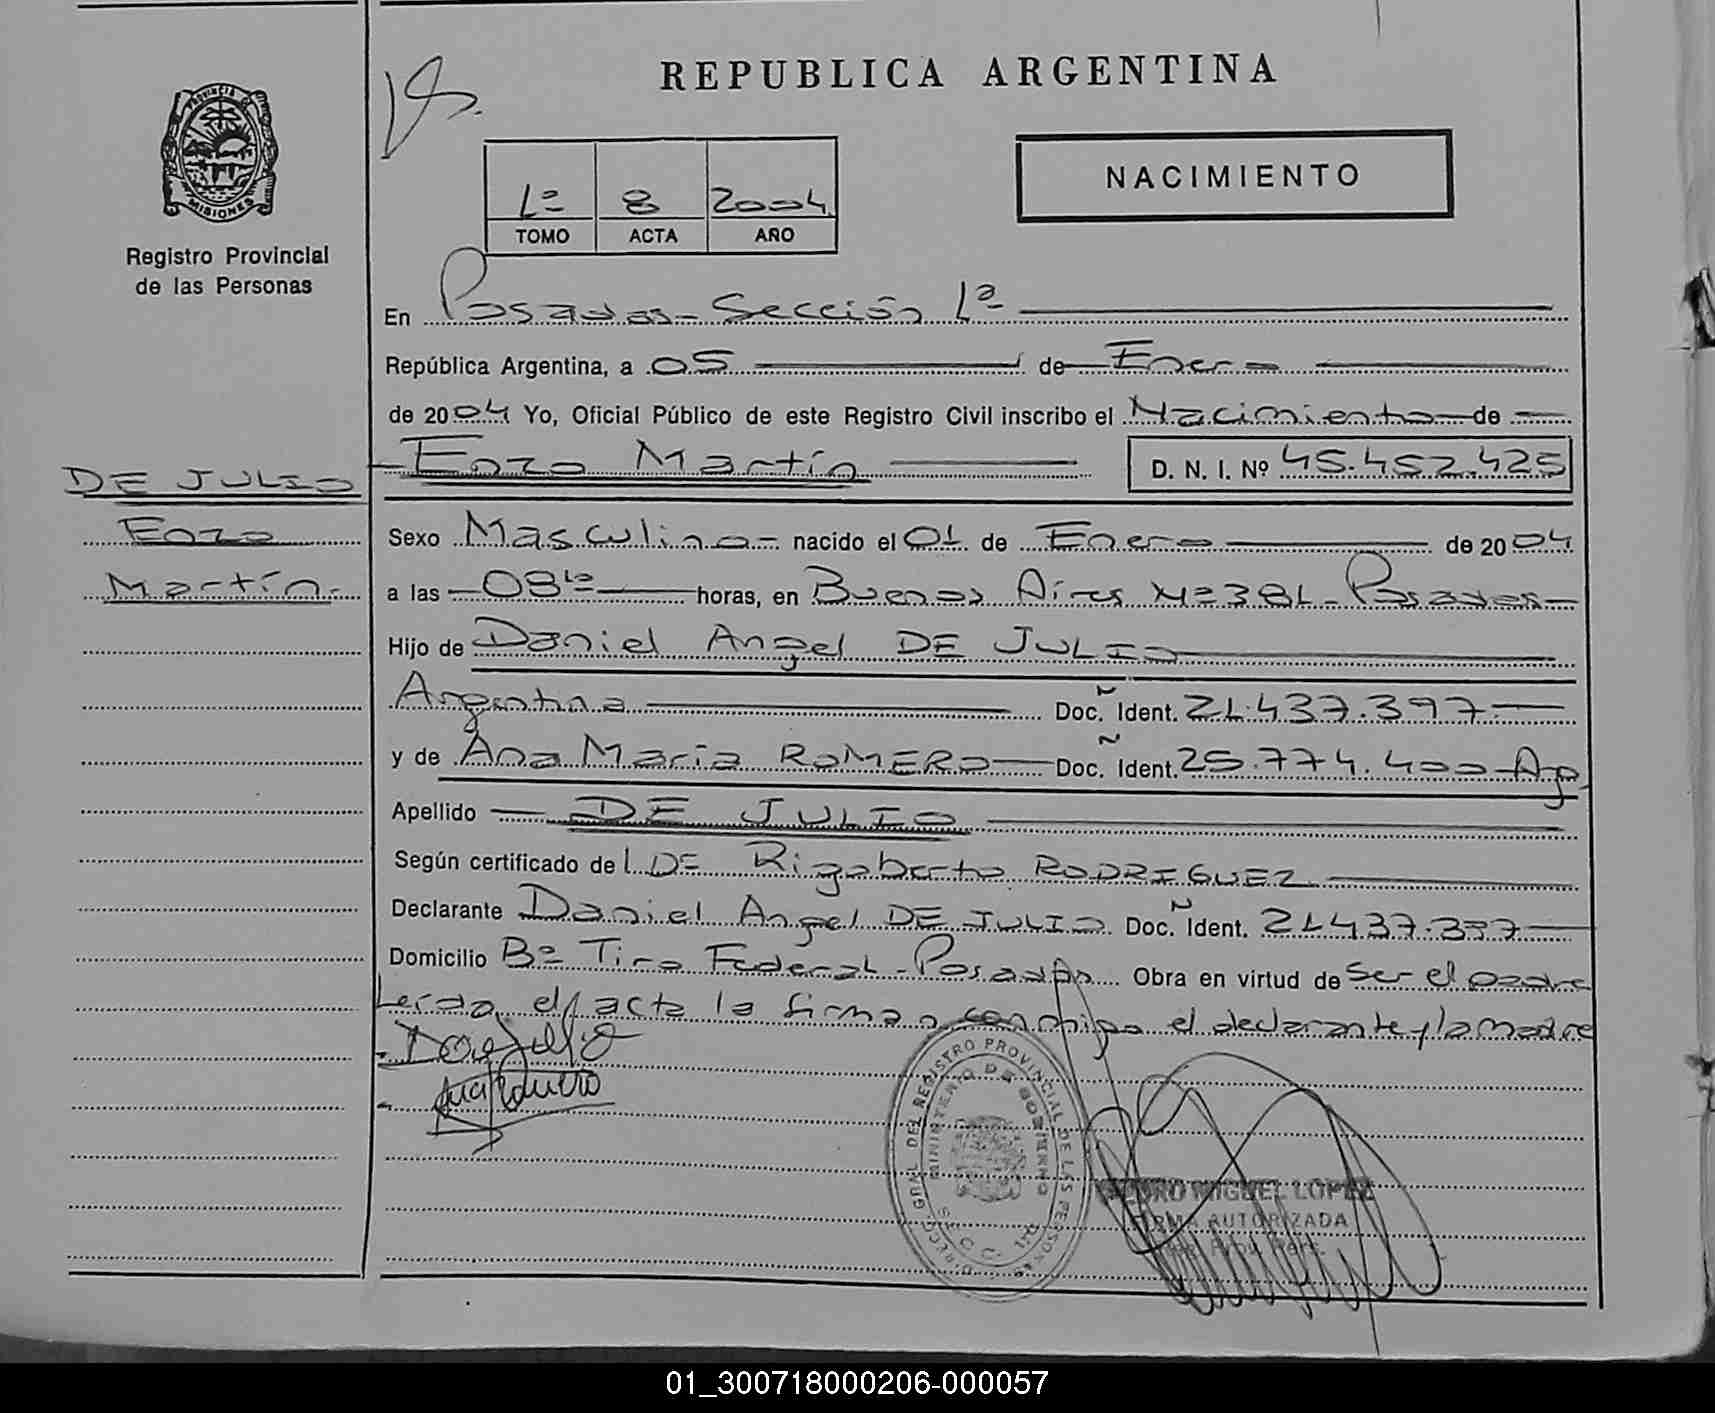 REPUBLICA ARGENTINA
PROVINCIA DE
MISIONES
Registro Provincial
de las Personas
1º 8 2004
TOMO ACTA AÑO
NACIMIENTO
En Posadas - Sección 1ª
República Argentina, a 05 de Enero
de 2004 Yo, Oficial Público de este Registro Civil inscribo el Nacimiento de
Enzo Martín D. N. I. Nº 45.452.425
DE JULIO
Enzo
Martín.-
Sexo Masculino - nacido el 01 de Enero de 2004
a las 08 horas, en Buenos Aires Nº 381 - Posadas -
Hijo de Daniel Angel DE JULIO
Argentina Doc. Ident. 21.437.397.-
y de Ana Maria ROMERO Doc. Ident. 25.774.400 - Ap
Apellido DE JULIO
Según certificado de DE Rigoberto RODRIGUEZ
Declarante Daniel Angel DE JULIO. Doc. Ident. 21.437.397
Domicilio Bº Tiro Federal - Posadas Obra en virtud de Ser el padre
Leida el acta la firman conmigo el declarante y la madre
DIRECC. GRAL. DEL REGISTRO PROVINCIAL DE LAS PERSONAS
MINISTERIO DE GOBIERNO
MIGUEL LOPEZ
FIRMA AUTORIZADA
01_300718000206-000057